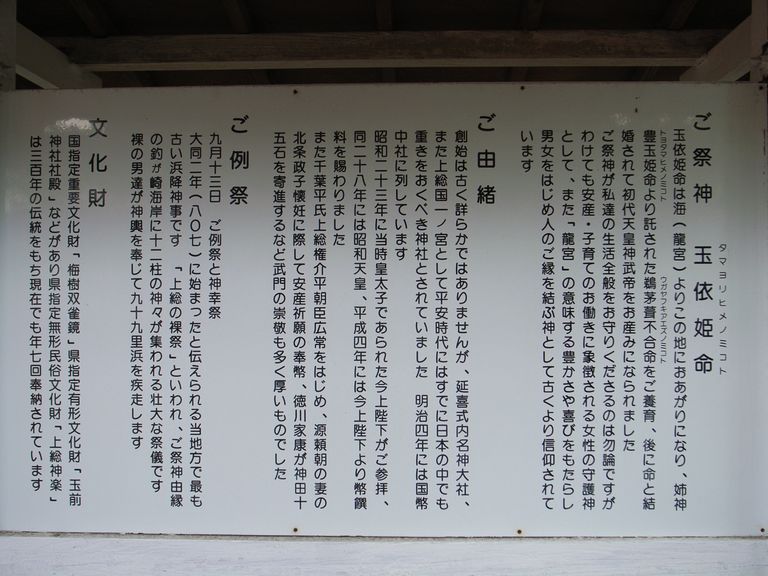 ご祭神　玉依姫命
タマヨリヒメノミコト
玉依姫命は海（龍宮）よりこの地におあがりになり、姉神
豊玉姫命より託された鵜茅葺不合命をご養育、後に命と結
トヨタマヒメノミコト
ウガヤフキアエズノミコト
婚されて初代天皇神武帝をお産みになられました
ご祭神が私達の生活全般をお守りくださるのは勿論ですが
わけても安産・子育てのお働きに象徴される女性の守護神
として、また「龍宮」の意味する豊かさや喜びをもたらし
男女をはじめ人のご縁を結ぶ神として古くより信仰されて
います
ご由緒
創始は古く詳らかではありませんが、延喜式内名神大社、
また上総国一ノ宮として平安時代にはすでに日本の中でも
重きをおくべき神社とされていました　明治四年には国幣
中社に列しています
昭和二十三年に当時皇太子であられた今上陛下がご参拝、
同二十八年には昭和天皇、平成四年には今上陛下より幣饌
料を賜わりました
また千葉平氏上総権介平朝臣広常をはじめ、源頼朝の妻の
北条政子懐妊に際して安産祈願の奉幣、徳川家康が神田十
五石を寄進するなど武門の崇敬も多く厚いものでした
ご例祭
九月十三日　ご例祭と神幸祭
大同二年（八〇七）に始まったと伝えられる当地方で最も
古い浜降神事です　「上総の裸祭」といわれ、ご祭神由縁
の釣ヶ崎海岸に十二柱の神々が集われる壮大な祭儀です
裸の男達が神輿を奉じて九十九里浜を疾走します
文化財
国指定重要文化財「梅樹双雀鏡」県指定有形文化財「玉前
神社社殿」などがあり県指定無形民俗文化財「上総神楽」
は三百年の伝統をもち現在でも年七回奉納されています